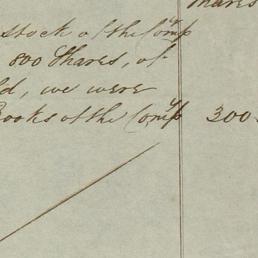 shares
stock of the Comp.y
800 Shares, of
ld, we were
Books of the Comp.y 300